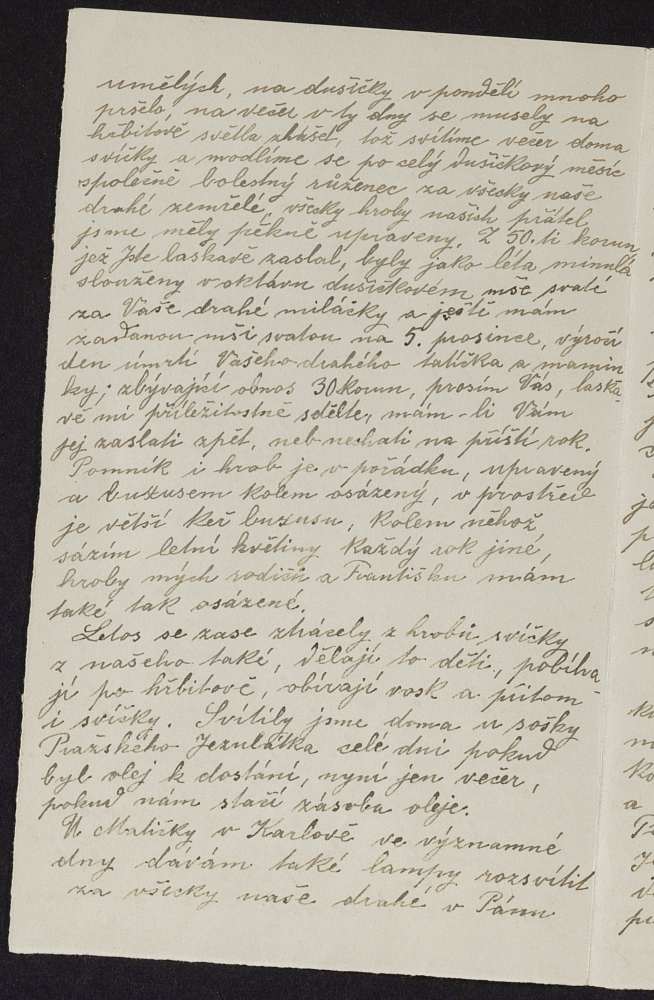 umělých, na dušičky v pondělí mnoho
pršelo, na večer v ty dny se musely na
hřbitově světla zhášet, tož svítíme večer doma
svíčky a modlíme se po celý dušičkový měsíc
společně bolestný růženec za všecky naše
drahé zemřelé, všecky hroby našich přátel
jsme měly pěkně upraveny. Z 50.ti korun
jež jste laskavě zaslal, byly jako léta minulá
slouženy v oktávu dušičkovém mše svaté
za Vaše drahé miláčky a ještě mám
zadanou mši svatou na 5. prosince, výročí
den úmrtí Vašeho drahého tatíčka a mamin
ky; zbývající obnos 30 korun, prosím Vás, laska-
vě mi příležitostně sdělte, mám-li Vám
jej zaslati zpět, neb nechati na příští rok.
Pomník i hrob je v pořádku, upravený
a buxusem kolem osázený, v prostřed
je větší keř buxusu, kolem něhož
sázím letní květiny každý rok jiné,
hroby mých rodičů a Františku mám
také tak osázené.
Letos se zase ztrácely z hrobů svíčky
z našeho také, dělají to děti, pobíha-
jí po hřbitově, obírají vosk a přitom
i svíčky. Svítily jsme doma u sošky
Pražského Jezulátka celé dni pokud
byl olej k dostání, nyní jen večer,
pokud nám stačí zásoba oleje.
U Matičky v Karlově ve významné
dny dávám také lampy rozsvítit
za všecky naše drahé v Pánu